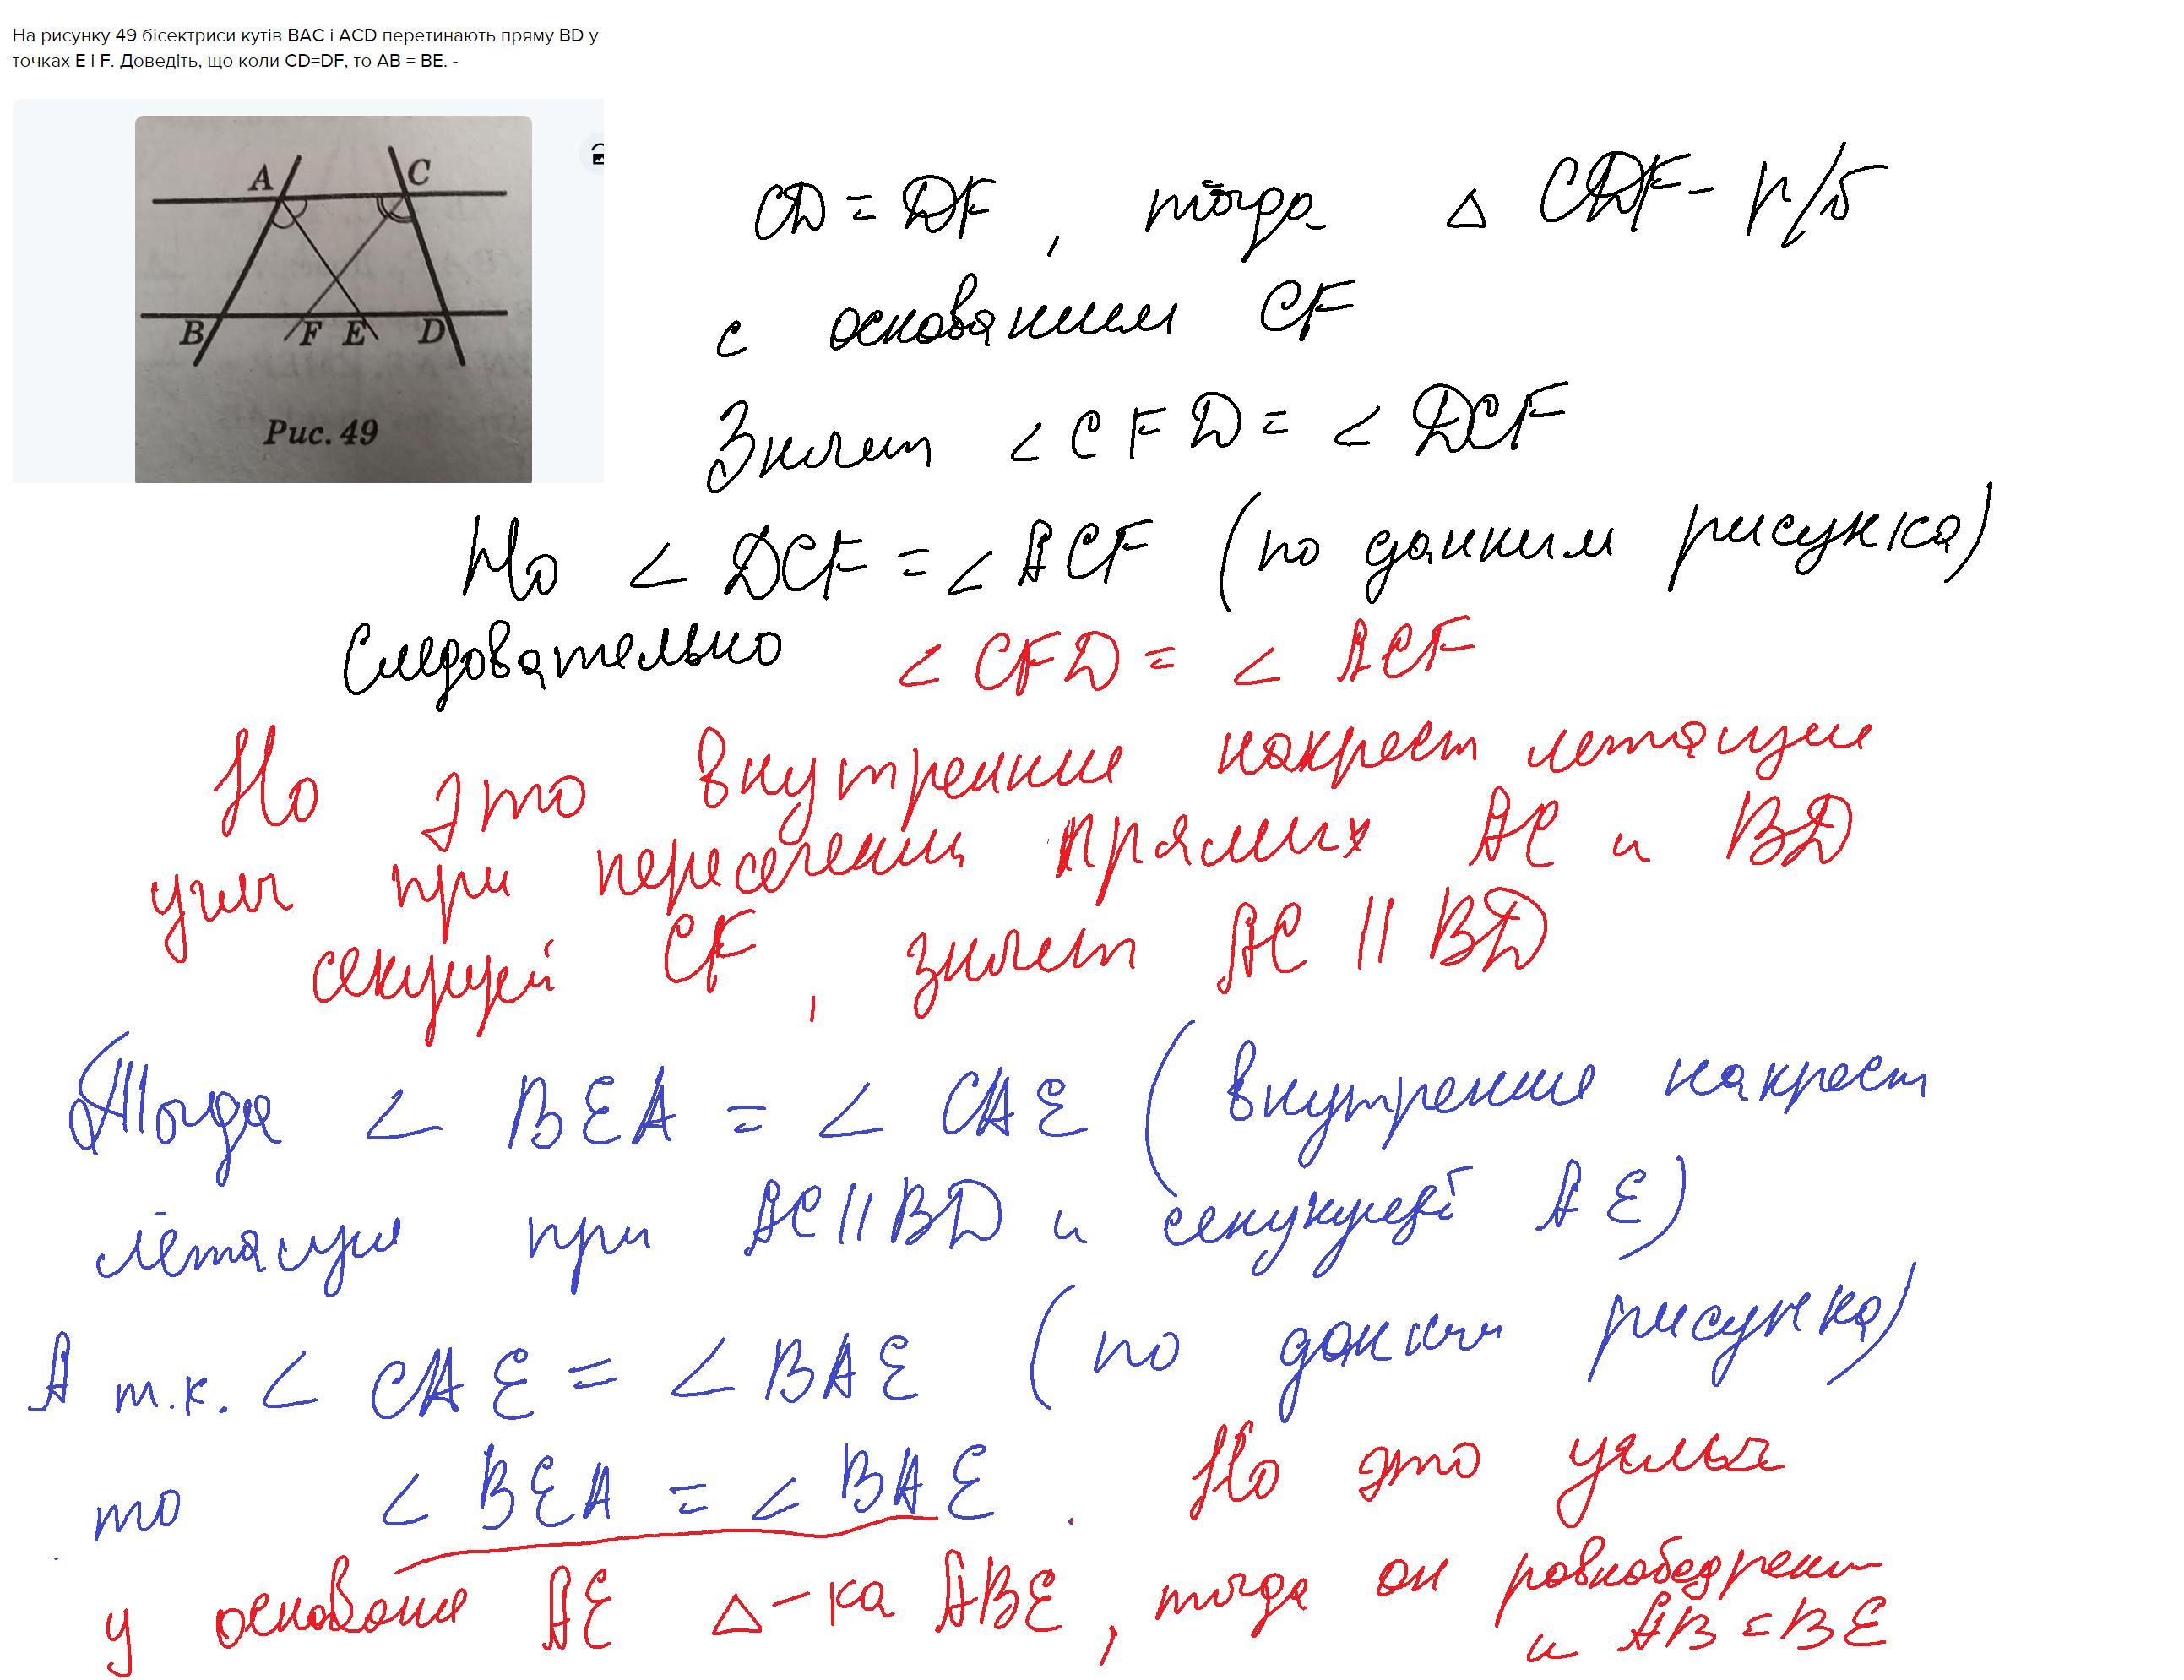 На рисунку 49 бісектриси кутів BAC і ACD перетинають пряму BD у
точках E і F. Доведіть, що коли CD=DF, то AB = BE. -
A C
B F E D
Рис. 49
CD = DF, тогда △ CDF - р/б
с основанием CF
Значит ∠CFD = ∠DCF
Но ∠DCF = ∠ACF (по данним рисунка)
Следовательно ∠CFD = ∠ACF
Но это внутренние накрест лежащие
углы при пересечении прямих AC и BD
секущей CF, значит AC || BD
Тогда ∠BEA = ∠CAE (внутренние накрест
лежащие при AC || BD и секущей AE)
А т.к. ∠CAE = ∠BAE (по даним рисунка)
то ∠BEA = ∠BAE. Но это углы
у основания AE △-ка ABE, тогда он равнобедрен
и AB = BE